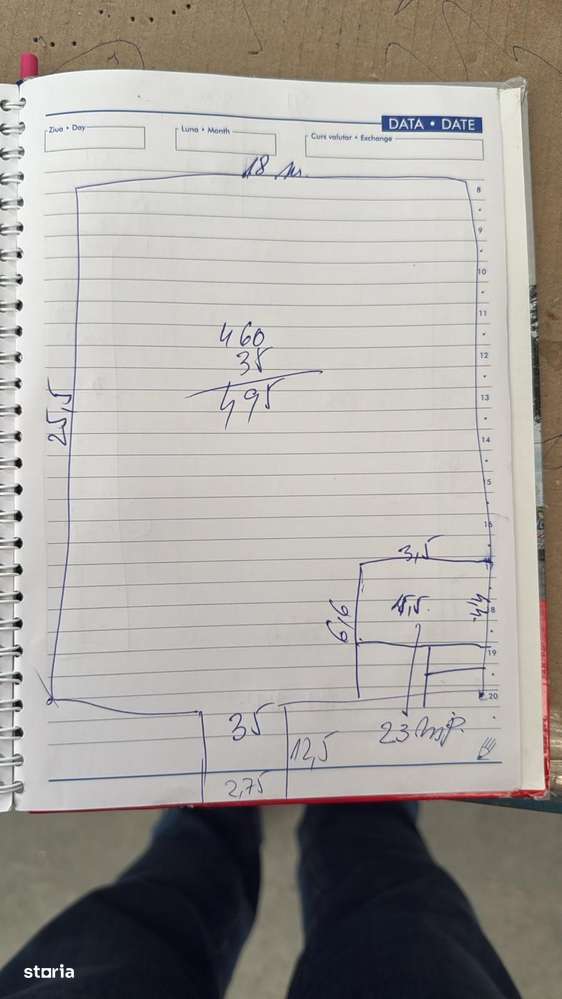 DATA • DATE
Ziua • Day
Luna • Month
Curs valutar • Exchange
18 m.
8
9
10
11
460
35
495
12
13
25,5
14
15
16
3,5
6,6
15,5
4,4
18
19
20
35
12,5
23 mp.
2,75
storia